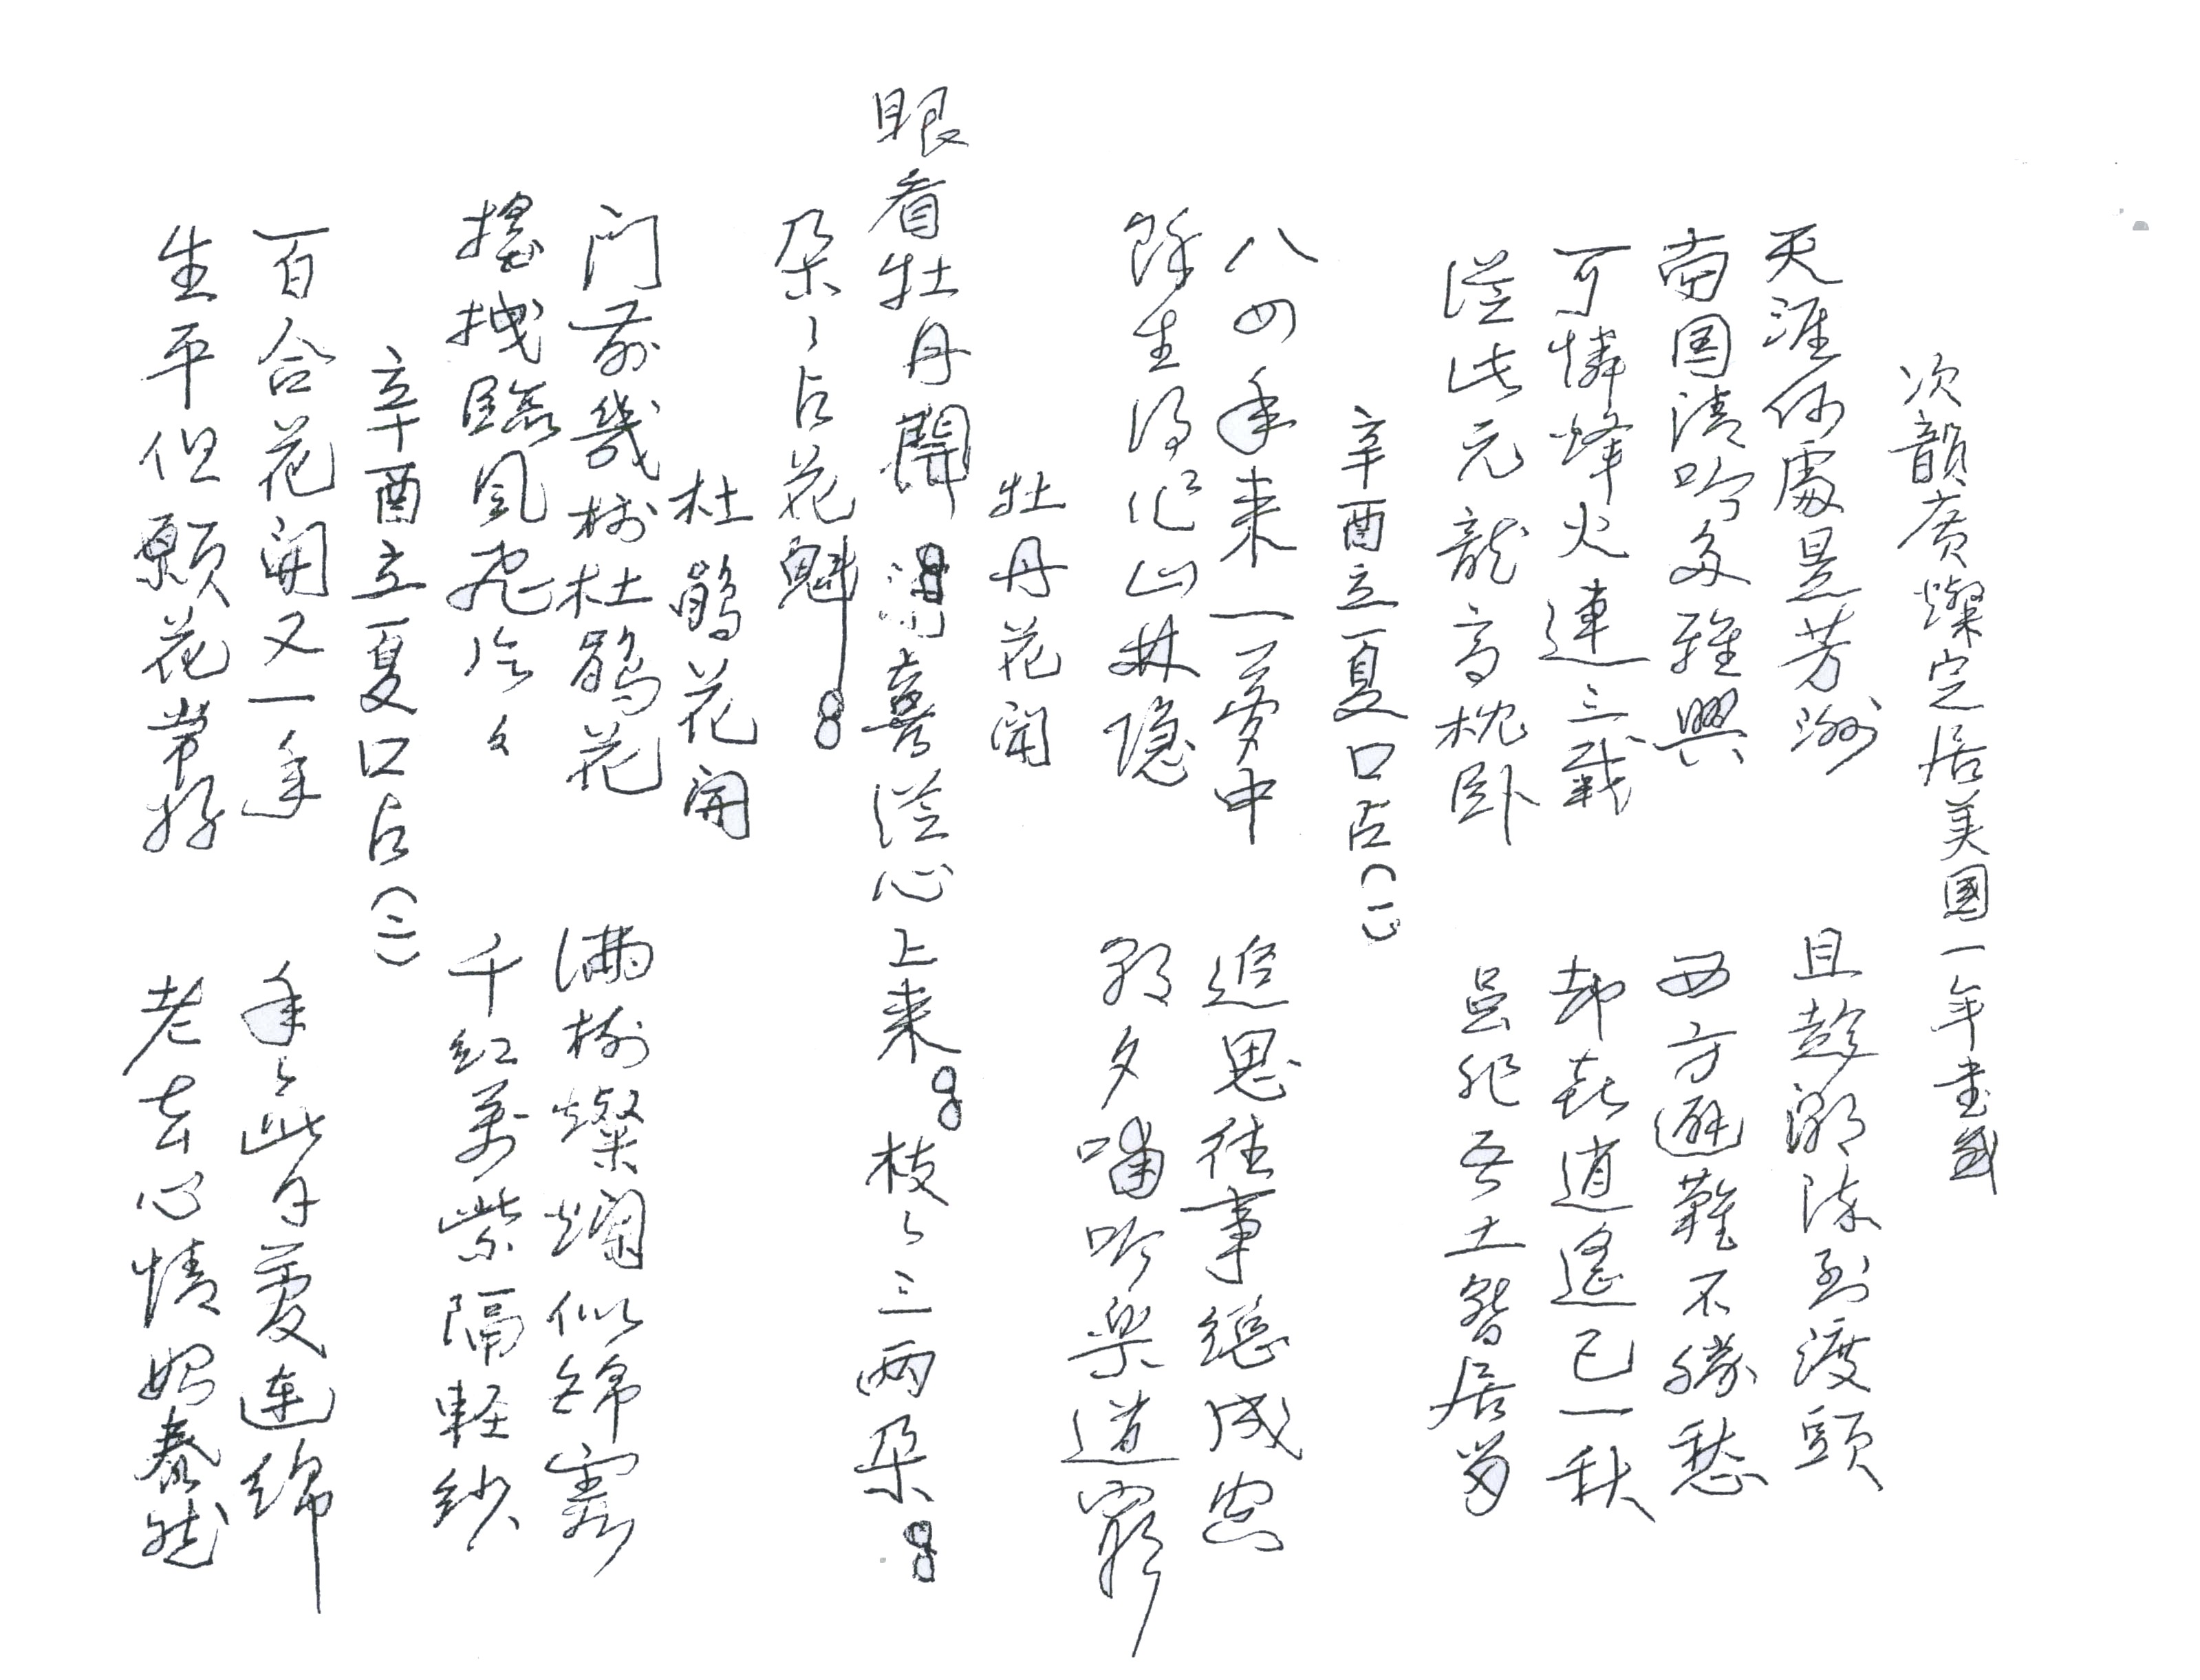 次韻廣燦定居美国一年書感
天涯何處是芳洲 且趁潮流到渡頭
南国清吟多雅興 西方避難不勝愁
可憐烽火連三載 却喜逍遙已一秋
從此元龍高枕臥 虽非吾土暂居留
辛酉立夏口占(一)
八四年来一夢中 追思往事總成空
餘生得作山林隐 朝夕哺吟樂道窮
牡丹花開
眼看牡丹開 喜從心上来 枝々三兩朵
朵々占花魁
杜鵑花開
门前幾树杜鵑花 满树燦爛似錦霞
搖拽臨風飛片々 千紅萬紫隔軽紗
辛酉立夏口占(二)
百合花開又一年 年々此日爱连绵
生平但願花常好 老去心情始泰然